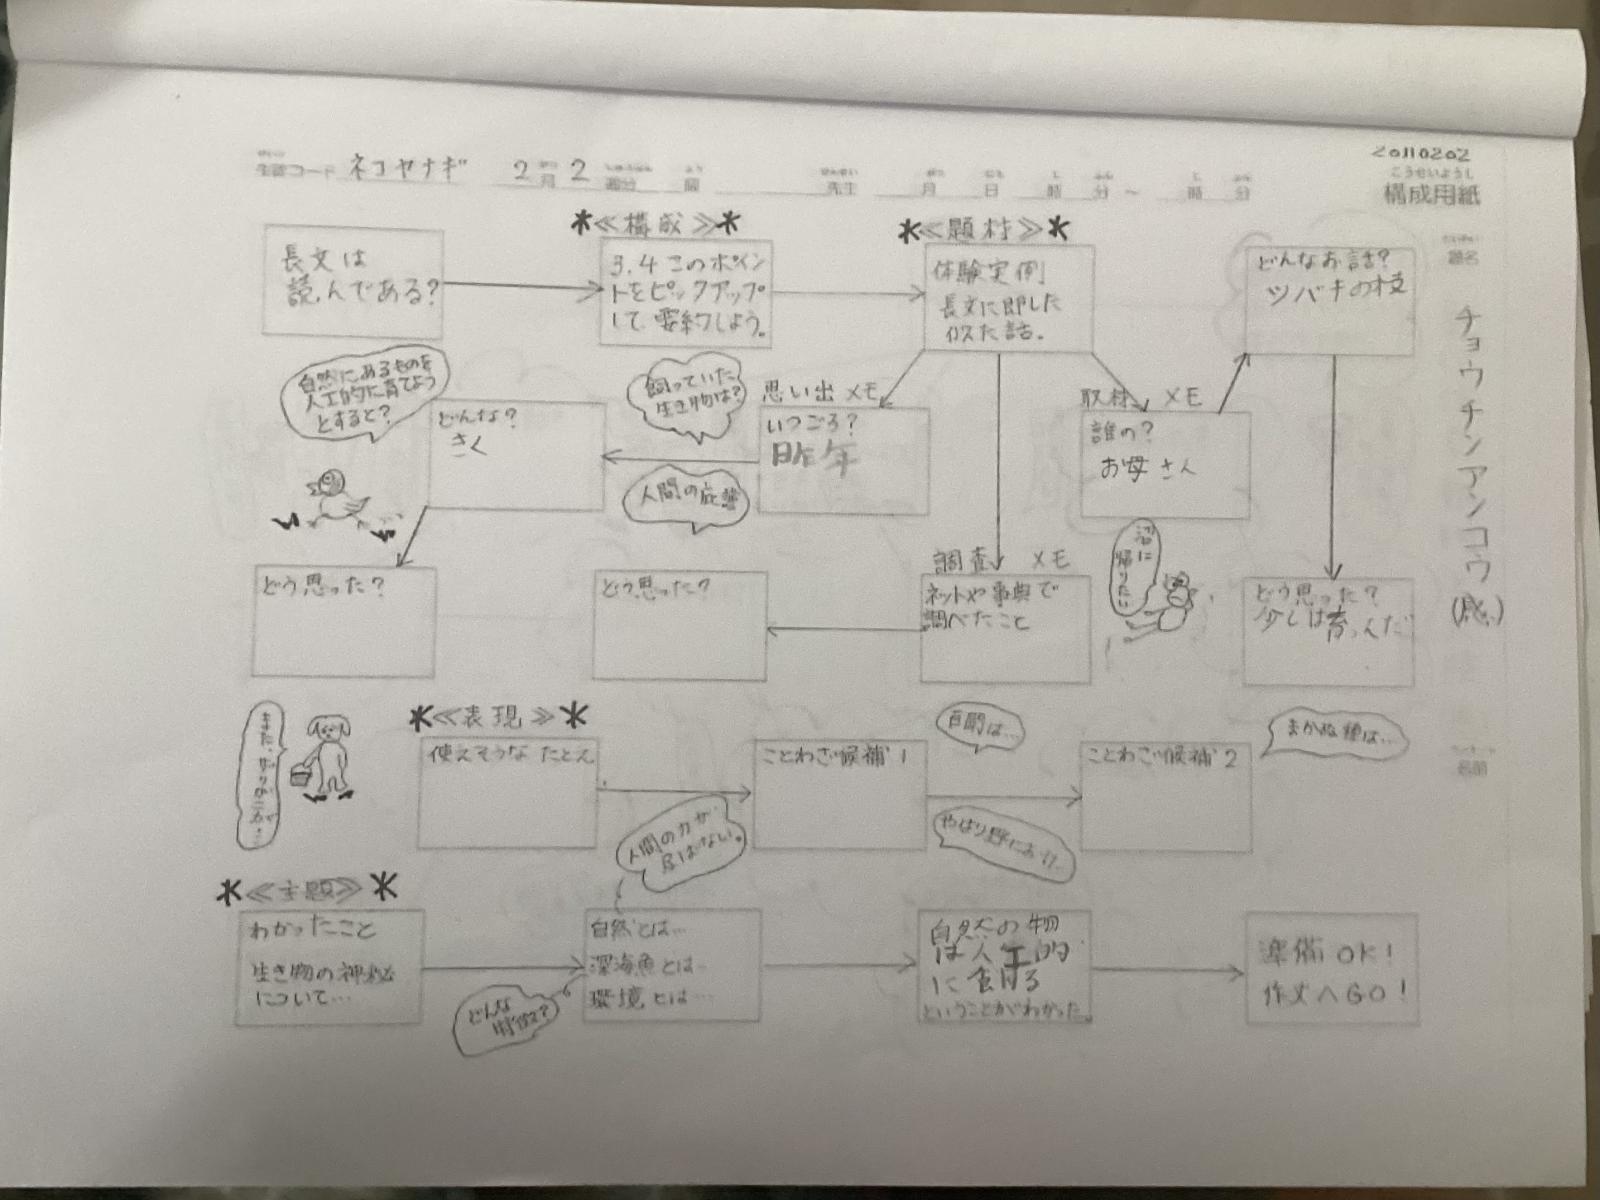 20110202
こうせいようし
構成用紙
生徒コード ネコヤナギ 2月2週分 時 先生 月 日 時 分〜 時 分
題名
チョウチンアンコウ(感)
名前
長文は
読んである?
*≪構成≫*
3.4このポイン
トをピックアップ
して、要約しよう。
*≪題材≫*
体験実例
長文に即した
似た話。
どんなお話?
ツバキの枝
自然にあるものを
人工的に育てよう
とすると?
どんな?
さく
飼っていた
生き物は?
人間の
思い出メモ
いつごろ?
昨年
取材メモ
誰の?
お母さん
沼に
帰りたい
どう思った?
どう思った?
調査メモ
ネットや事典で
調べたこと
どう思った?
少しは育つんだ
また、ザリガニが…
*≪表現≫*
使えそうなたとえ
人間の力が
ことわざ候補1
百聞は…
やはり野におけ…
ことわざ候補2
まかぬ種は…
*≪主題≫*
わかったこと
生き物の神秘
について…
どんな
特徴?
自然とは…
深海魚とは…
環境とは…
自然の物
は人工的
に
ということがわかった。
準備OK!
作文へGO!